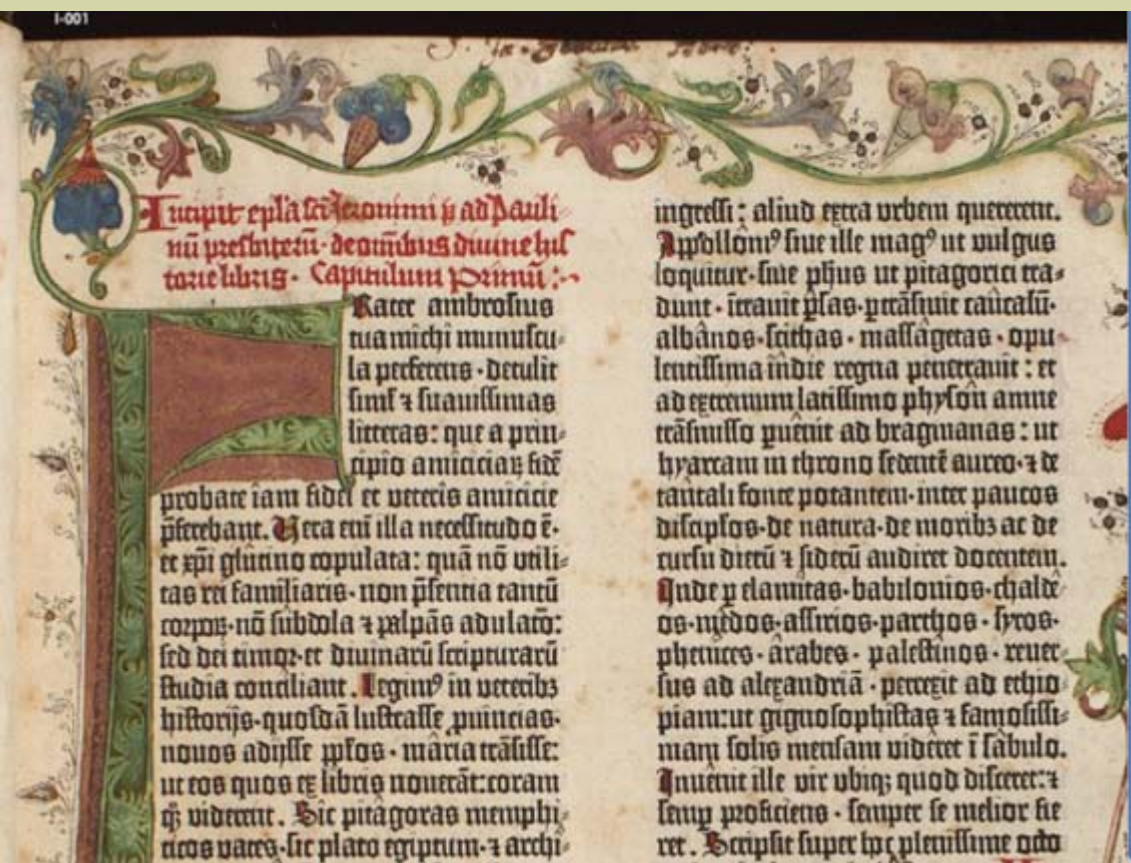 I-001
Incipit ep̄la sc̄i Ieronimi ad Pauli-
nū presbiterū· de oīnibus diuine his
torie libris· Capitulum Primū:·
Rater ambrosius
tua michi munuscu-
la perferens· detulit
siml̕ ⁊ suauissimas
litteras: que a prin-
cipio amiciciaꝝ fidē
probate iam fidei et veteris amicicie
p̄ferebant. Uera enī illa necessitudo ē·
et xp̄i glutino copulata: quā nō utili-
tas rei familiaris· non p̄sentia tantū
corpoꝝ· nō subdola ⁊ palpās adulatō:
sed dei timor· et diuinarū scripturarū
studia conciliant. Legimꝰ in veteribꝫ
historijs· quosdā lustrasse ꝓuincias·
nouos adijsse pp̄los· maria trāsisse:
ut eos quos ex libris nouerāt: coram
qꝫ viderent. Sic pitagoras memphi-
ticos vates· sic plato egiptum· ⁊ archi-
ingressi: aliud extra vrbem quererent.
Appollonīꝰ siue ille magꝰ ut vulgus
loquitur· siue ph̄us ut pitagorici tra-
dunt· ītrauit p̄sas· ꝑtrāsiuit caucasū·
albanos· scithas· massagetas· opu-
lentissima indie regna penetrauit: et
ad extremum latissimo physon amne
trāsmisso puenit ad bragmanas: ut
hyarcam in throno sedentē aureo· ⁊ de
tantali fonte potantem· inter paucos
discip̄los· de natura· de moribꝫ ac de
cursu dierū ⁊ siderū audiret docentem.
Inde ꝑ elamitas· babilonios· chalde-
os· medos· assirios· parthos· syros·
phenices· arabes· palestinos· reuer-
sus ad alexandriā· perrexit ad ethio-
piam: ut gignosophistas ⁊ famosissi-
mam solis mensam videret ī sabulo.
Inuenit ille vir vbiqꝫ quod disceret: ⁊
semꝑ proficiens· semper se melior fie
ret. Scripsit super hoc plenissime octo